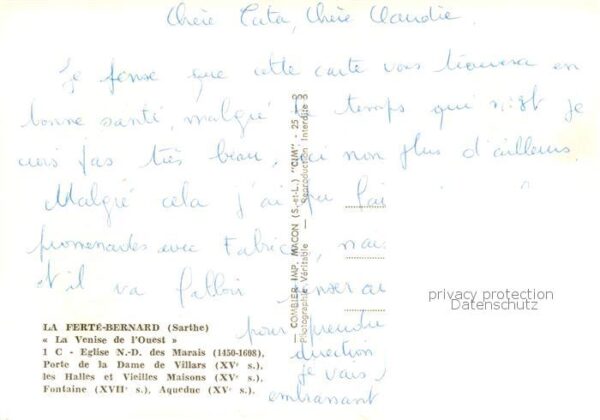 Chère Tata, Chère Claudie.
Je pense que cette carte vous trouvera en
bonne santé, malgré le temps qui n'est je
crois pas très beau, ici non plus d'ailleurs.
Malgré cela j'ai pu fai
promenades avec Fabrice, mai
et il va falloir
pour prendre
direction
je vais
embrassant
LA FERTÉ-BERNARD (Sarthe)
« La Venise de l'Ouest »
1 C - Eglise N.-D. des Marais (1450-1608),
Porte de la Dame de Villars (XVe s.),
les Halles et Vieilles Maisons (XVe s.),
Fontaine (XVIIe s.), Aqueduc (XVe s.)
— COMBIER IMP. MACON (S.-et-L.) "CIM" - 25
Photographie Véritable — Reproduction Interdite
privacy protection
Datenschutz